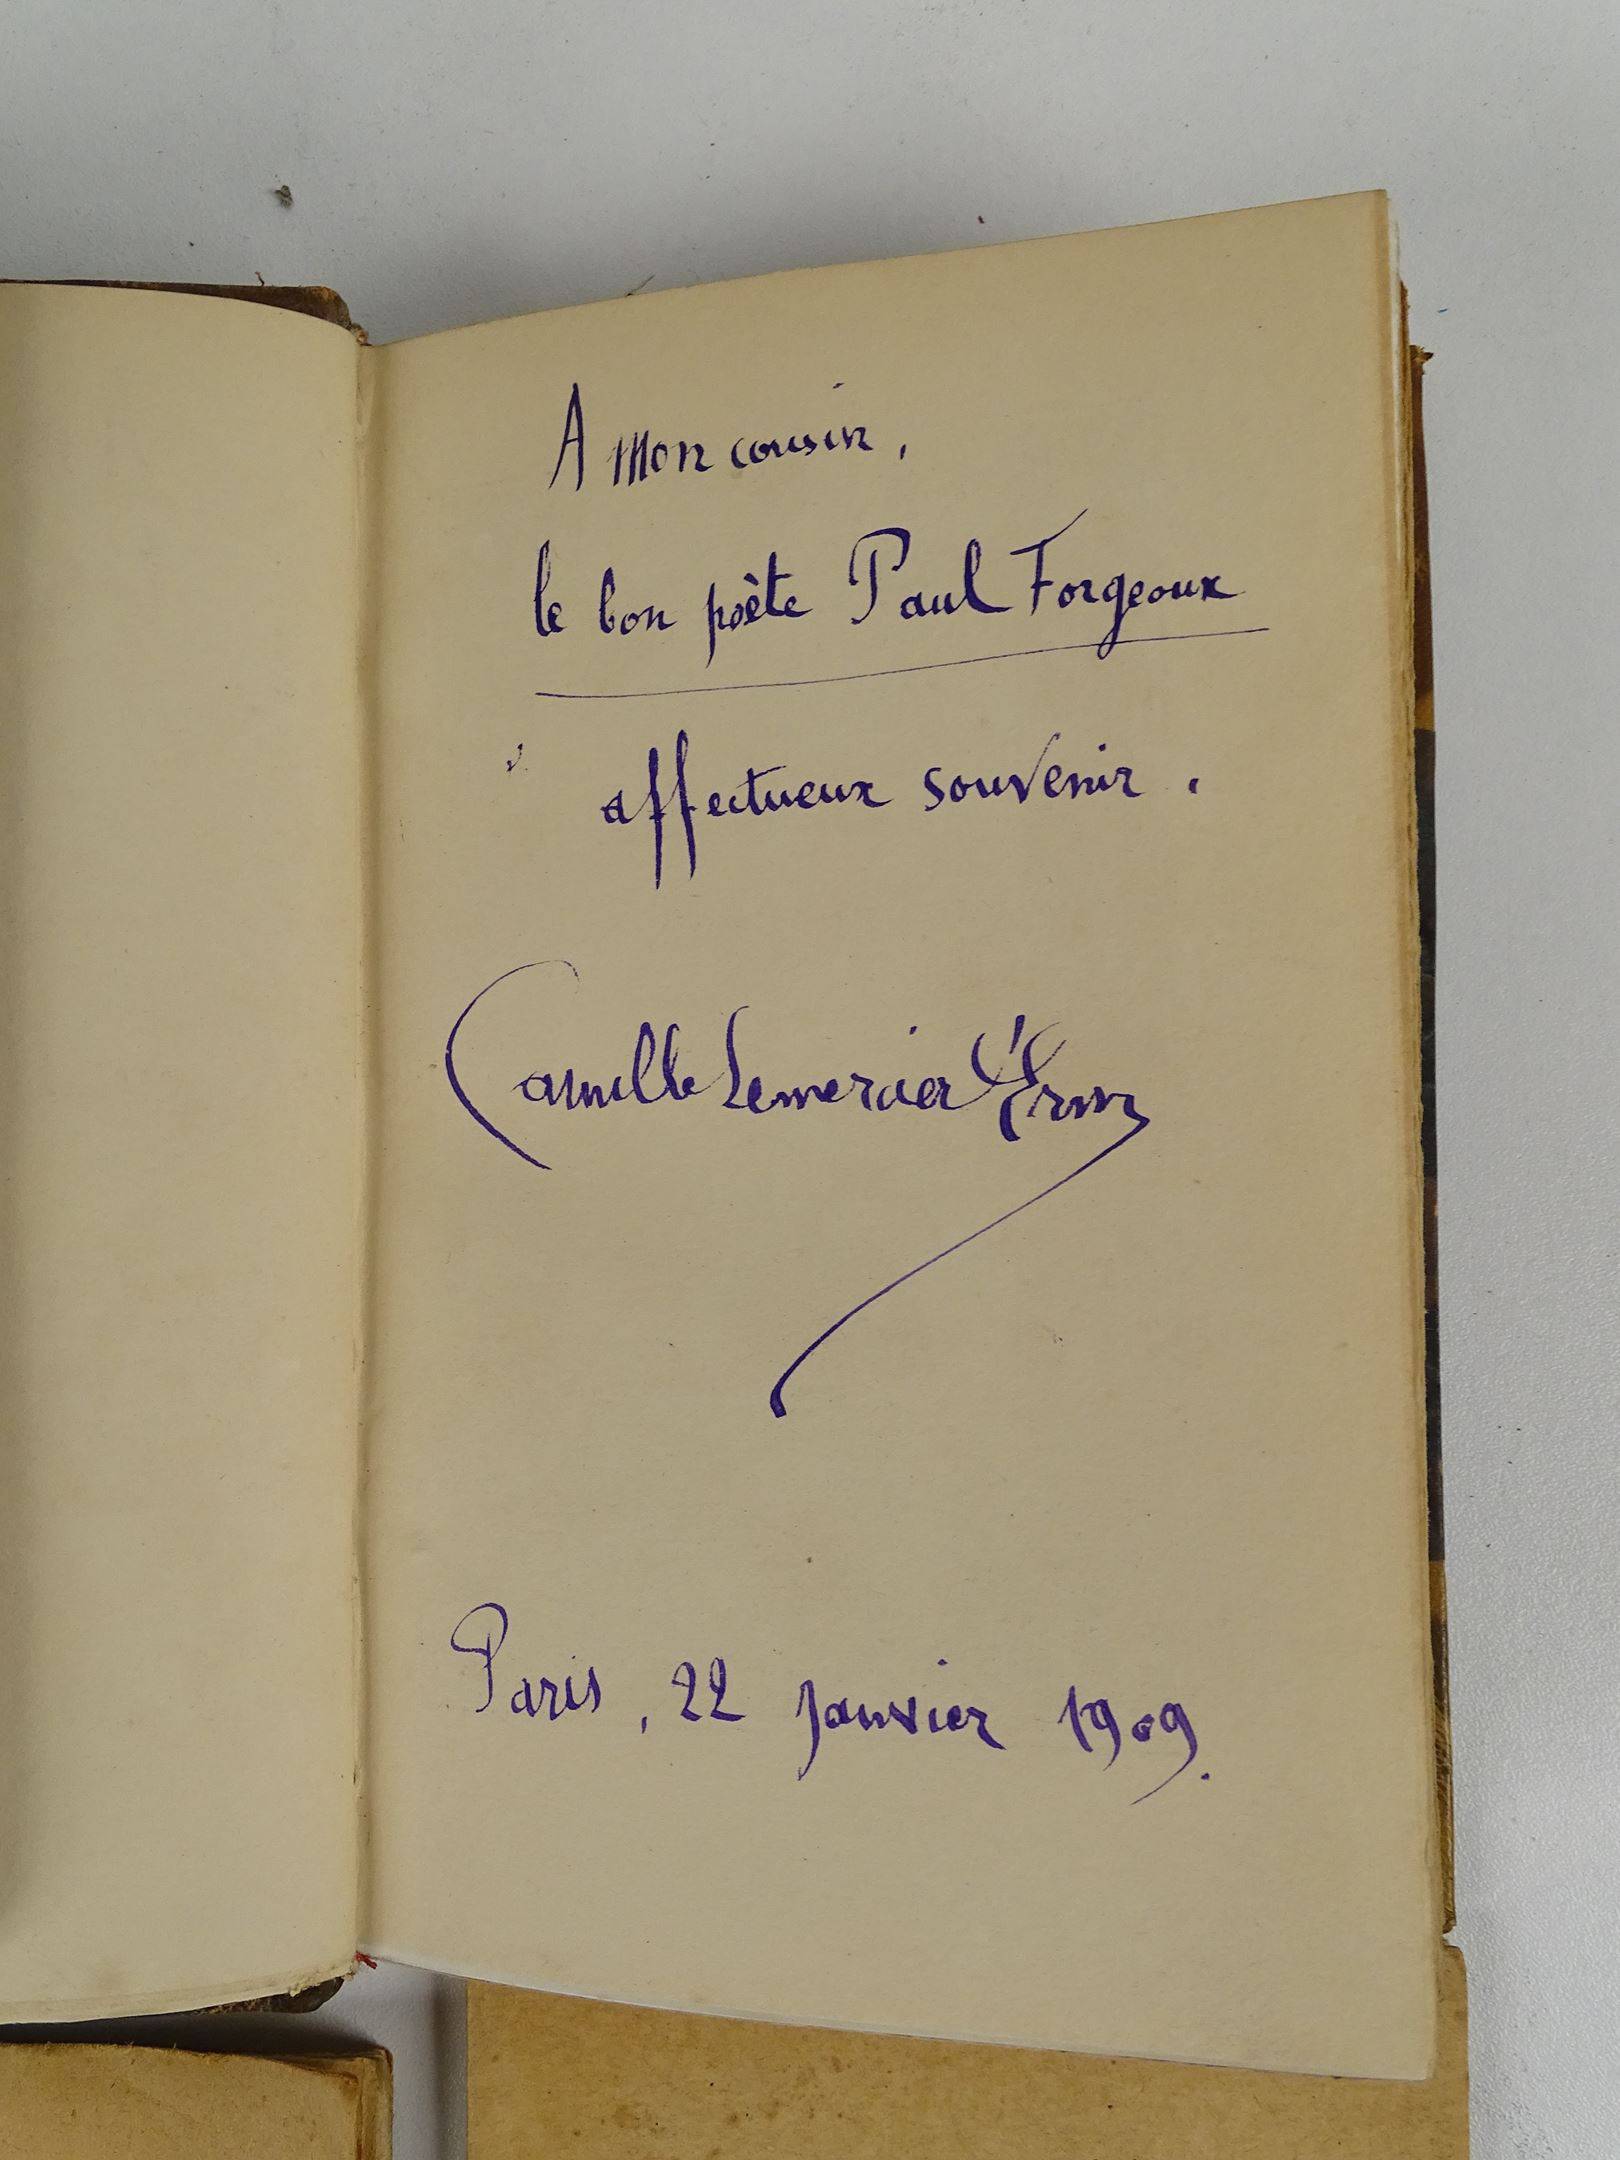 A mon cousin,
le bon poète Paul Forgeoux
affectueux souvenir.
Camille Lemercier d'Erm
Paris, 22 janvier 1909.